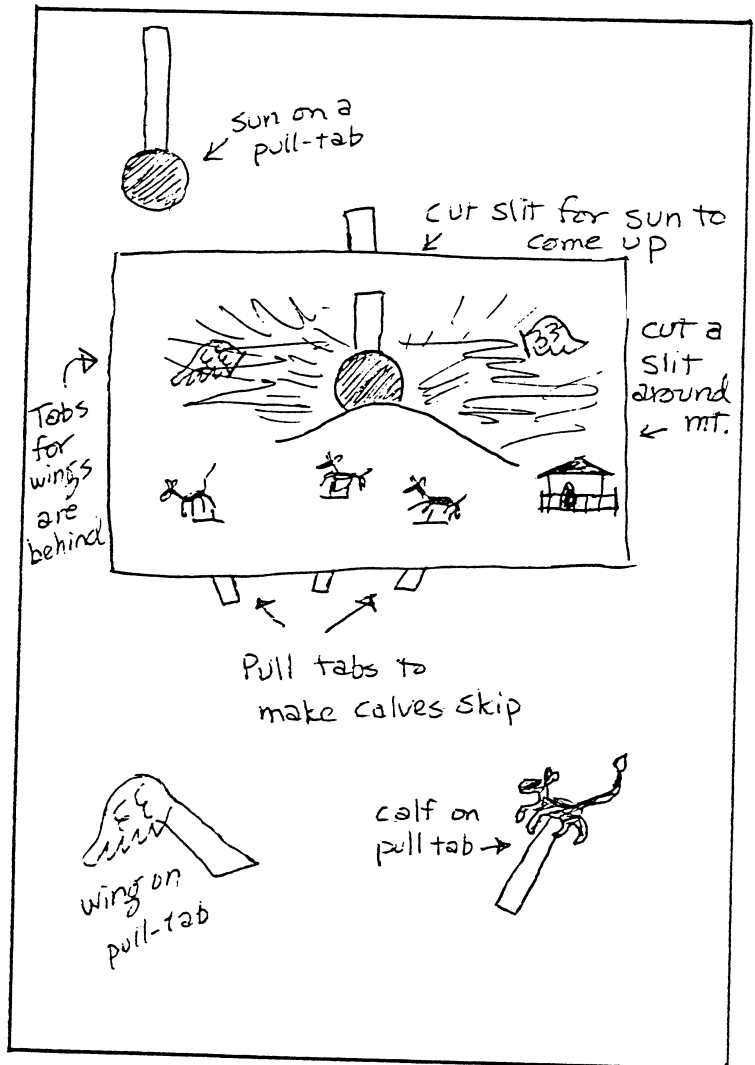 sun on a
pull-tab
cut slit for sun to
come up
cut a
slit
around
mt.
Tabs
for
wings
are
behind
Pull tabs to
make calves skip
wing on
pull-tab
calf on
pull tab